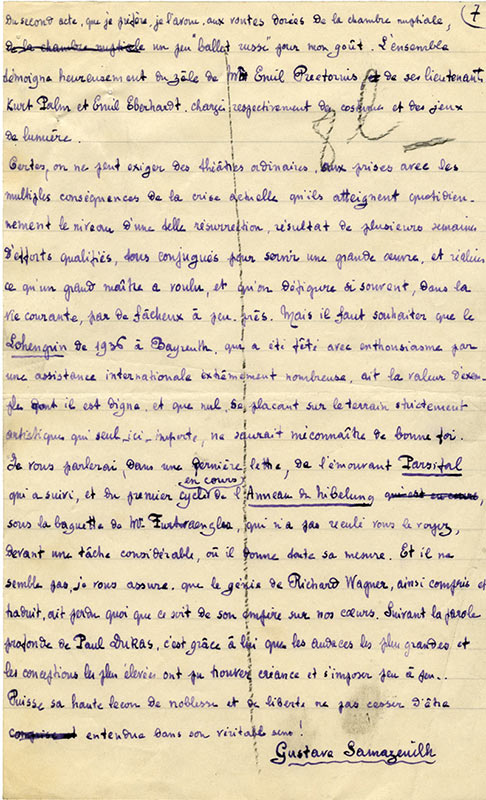 7
du second acte, que je préfère, je l'avoue, aux voûtes dorées de la chambre nuptiale,
de la chambre nuptiale un peu "ballet russe" pour mon goût. L'ensemble
témoigne heureusement du zèle de Mr Emil Preetorius et de ses lieutenants
Kurt Palm et Emil Eberhardt, chargés respectivement des costumes et des jeux
de lumière.
Certes, on ne peut exiger des théâtres ordinaires, aux prises avec les
multiples conséquences de la crise actuelle qu'ils atteignent quotidien-
nement le niveau d'une telle résurrection, résultat de plusieurs semaines
d'efforts qualifiés, tous conjugués pour servir une grande œuvre, et réaliser
ce qu'un grand maître a voulu, et qu'on défigure si souvent, dans la
vie courante, par de fâcheux à peu-près. Mais il faut souhaiter que le
Lohengrin de 1936 à Bayreuth, qui a été fêté avec enthousiasme par
une assistance internationale extrêmement nombreuse, ait la valeur d'exem-
ple dont il est digne, et que nul, se plaçant sur le terrain strictement
artistique qui seul_ici_importe, ne saurait méconnaître de bonne foi.
Je vous parlerai, dans une dernière lettre, de l'émouvant Parsifal
en cours
qui a suivi, et du premier cycle de l'Anneau du Nibelung qui est en cours,
sous la baguette de Mr. Furtwaengler, qui n'a pas reculé vous le voyez,
devant une tâche considérable, où il donne toute sa mesure. Et il ne
semble pas, je vous assure, que le génie de Richard Wagner, ainsi compris et
traduit, ait perdu quoi que ce soit de son empire sur nos cœurs. Suivant la parole
profonde de Paul Dukas, c'est grâce à lui que les audaces les plus grandes et
les conceptions les plus élevées ont pu trouver créance et s'imposer peu à peu..
Puisse sa haute leçon de noblesse et de liberté ne pas cesser d'être
entendue dans son véritable sens!
Gustave Samazeuilh